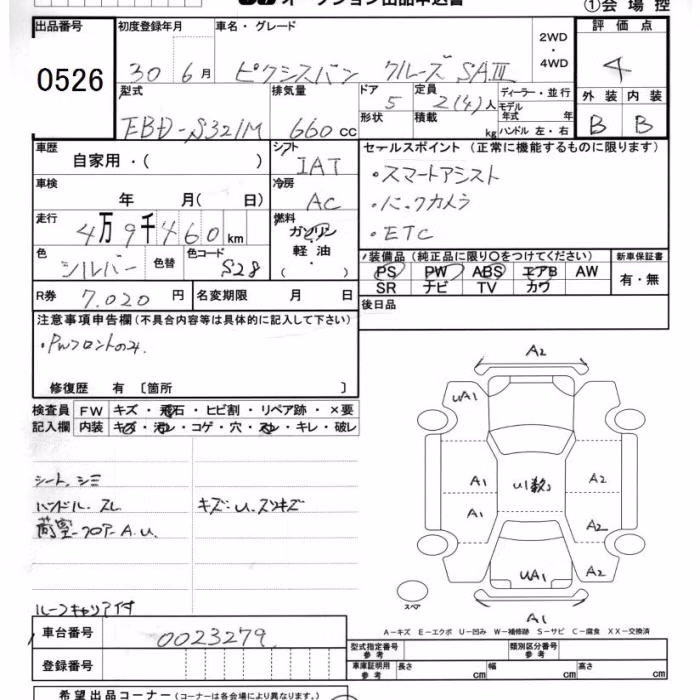 オークション出品申込書
①会場控
出品番号 初度登録年月 車名・グレード 2WD・4WD 評価点
0526 30年 6月 ピクシスバン クルーズ SAⅢ 4
型式 排気量 ドア 定員 ディーラー・並行 外装 内装
EBD-S321M 660cc 5 2(4)人 モデル年式 年 B B
形状 積載 kg ハンドル 左・右
車歴 シフト セールスポイント(正常に機能するものに限ります)
自家用・( ) IAT ・スマートアシスト
車検 冷房
年 月( 日) AC ・バックカメラ
走行 燃料
4万9千460km ガソリン・軽油・( ) ・ETC
色 色替 色コード 装備品(純正品に限り○をつけてください) 新車保証書
シルバー S28 PS PW ABS エアB AW 有・無
SR ナビ TV カワ
R券 7.020円 名変期限 月 日 後日品
注意事項申告欄(不具合内容等は具体的に記入して下さい)
・PWフロントのみ.
修復歴 有〔箇所 〕
検査員 FW キズ・飛石・ヒビ割・リペア跡・×要
記入欄 内装 キズ・汚レ・コゲ・穴・スレ・キレ・破レ
シート.シミ
ハンドル.スレ キズ・U.スリキズ
荷室-フロアーA.U.
ルーフキャリア付
A2
UA1
A1 U1数コ A2
A1 A2
UA1 A2
スペア
A1
A-キズ E-エクボ U-凹み W-補修跡 S-サビ C-腐食 XX-交換済
車台番号 0023279 型式指定番号 参考 類別区分番号 参考
登録番号 車庫証明用 参考 長さ cm 幅 cm 高さ cm
希望出品コーナー(コーナーは各会場により異なります。)